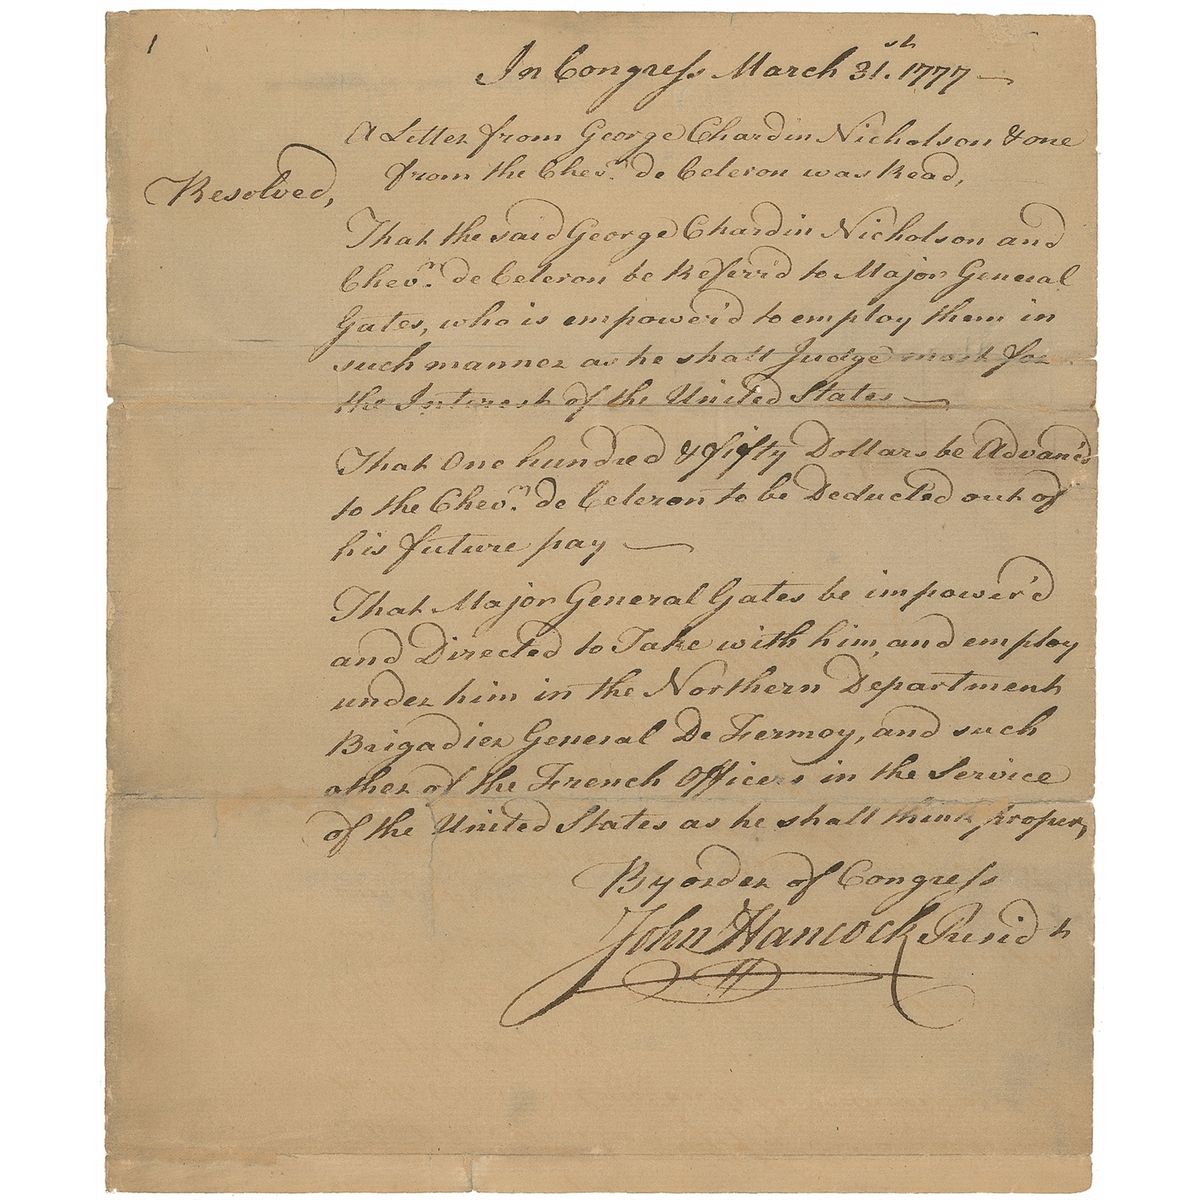 1
In Congress March 31st. 1777
A Letter from George Chardin Nicholson & one
from the Chevr. de Celeron was Read,
Resolved,
That the said George Chardin Nicholson and
Chevr. de Celeron be Referr'd to Major General
Gates, who is empower'd to employ them in
such manner as he shall Judge most for
the Interest of the United States
That One hundred & fifty Dollars be Advanc'd
to the Chevr. de Celeron to be Deducted out of
his future pay
That Major General Gates be impower'd
and Directed to Take with him, and employ
under him in the Northern Department
Brigadier General De Fermoy, and such
other of the French Officers in the Service
of the United States as he shall think proper,
By order of Congress
John Hancock Presidt